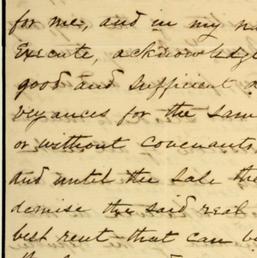 for me, and in my na
Execute, acknowledge
good and sufficient
veyances for the sam
or without covenants
and until the sale the
demise the said real
best rent that can be